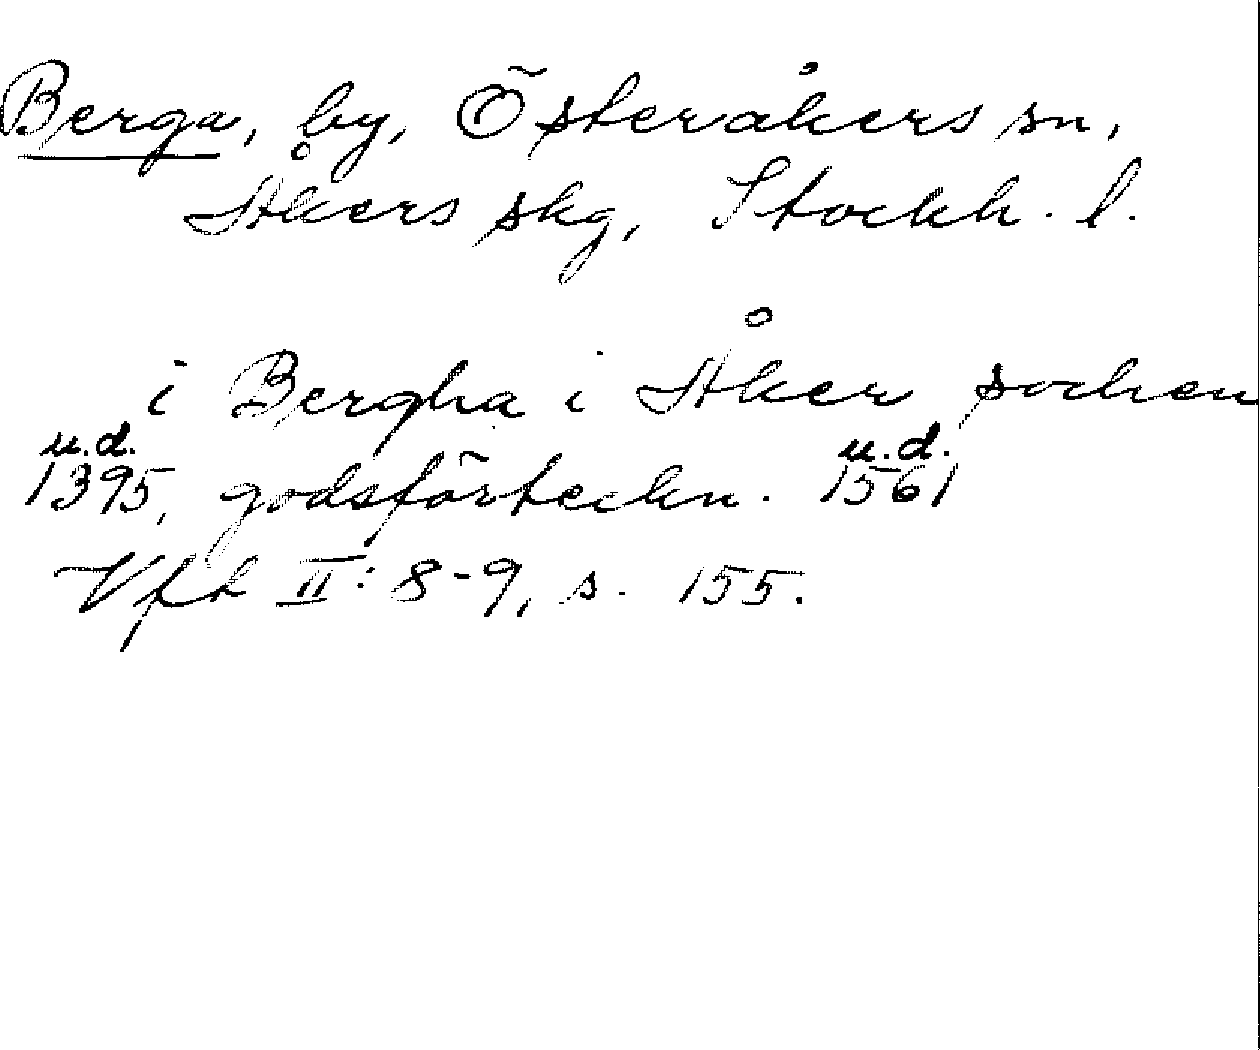 Berga, by, Österåkers sn,
Åkers skg, Stockh. l.
i Bergha i Åker sochen
u.d. u.d.
1395, godsförteckn. 1561
Vft II: 8-9, s. 155.